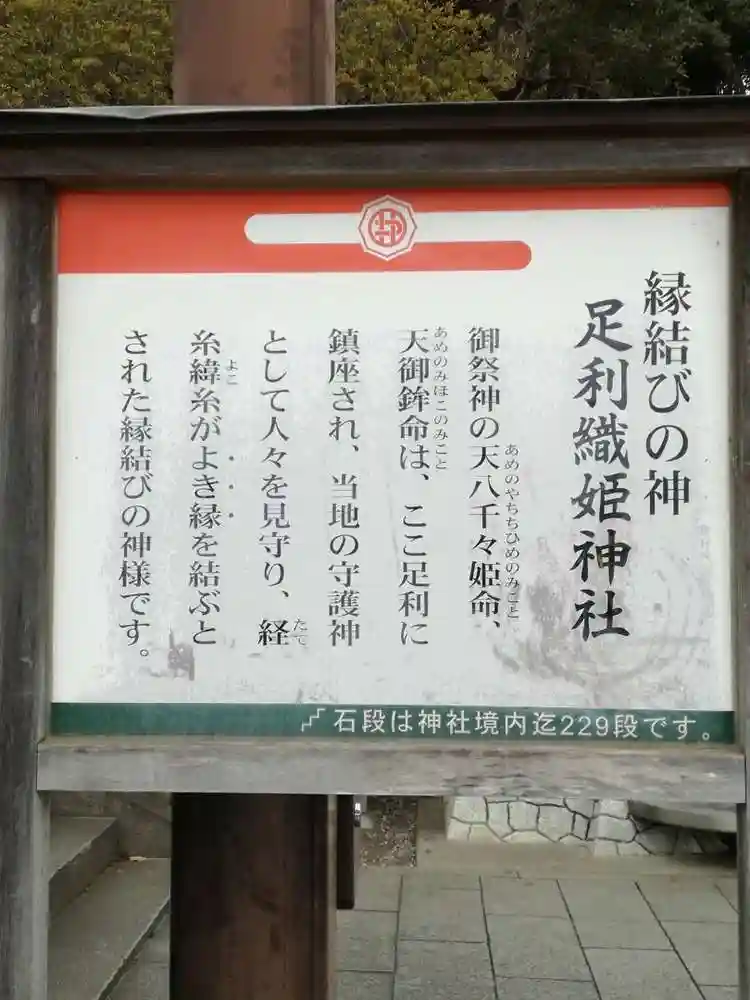 縁結びの神
足利織姫神社
御祭神の天八千々姫命、
あめのやちちひめのみこと
天御鉾命は、ここ足利に
あめのみほこのみこと
鎮座され、当地の守護神
として人々を見守り、経
たて
糸緯糸がよき縁を結ぶと
よこ
された縁結びの神様です。
石段は神社境内迄229段です。